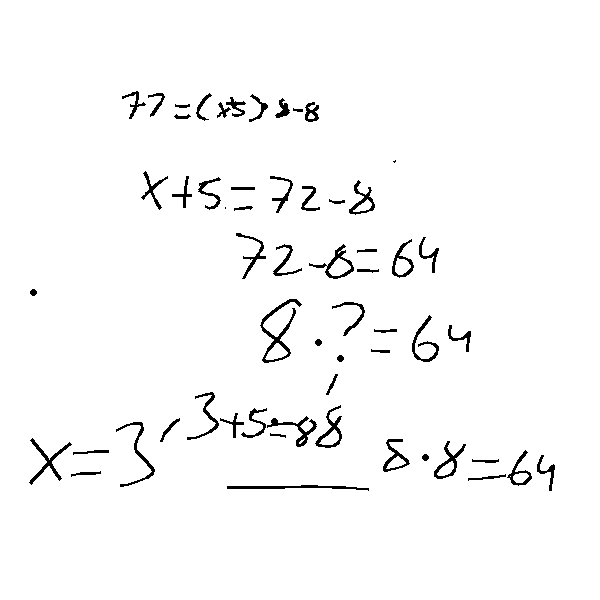 77=(x+5)·8-8
x+5=72-8
72-8=64
8·?=64
3+5=88
x=3 8·8=64